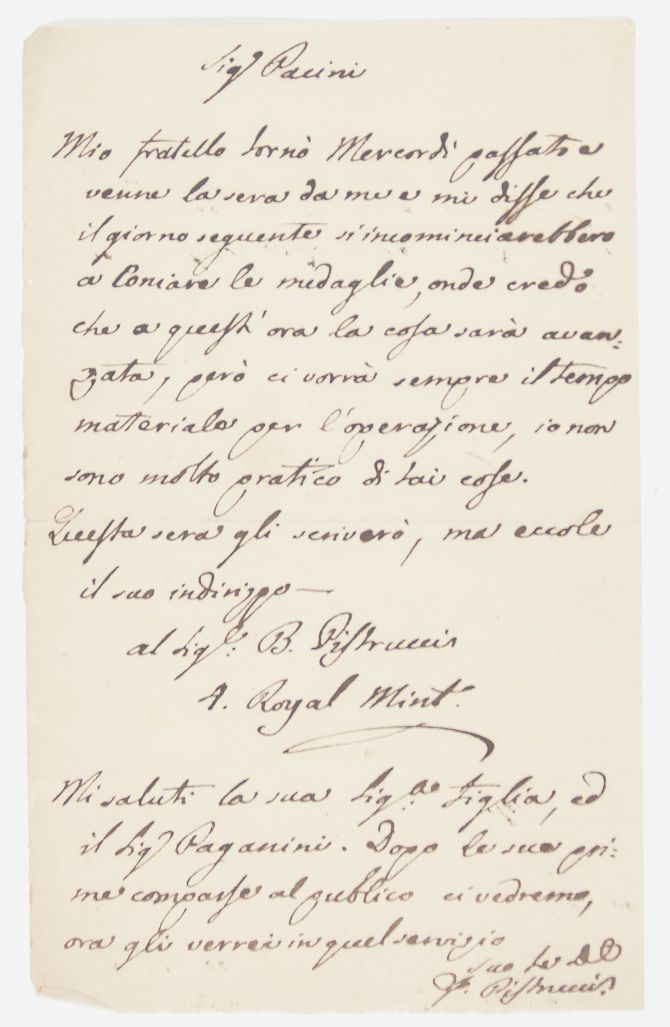 Sig.r Pacini
Mio fratello tornò Mercordì passato e
venne la sera da me e mi disse che
il giorno seguente s'incomincierebbero
a Coniare le medaglie, onde credo
che a quest'ora la cosa sarà avan-
zata, però ci vorrà sempre il tempo
materiale per l'operazione, io non
sono molto pratico di tai cose.
Questa sera gli scriverò, ma eccole
il suo indirizzo —
al Sig.r B. Pistrucci
4. Royal Mint.
Mi saluti la sua Sig.ra Figlia, ed
il Sig.r Paganini. Dopo le sue pri-
me comparse al publico ci vedremo,
ora gli verrei in quel servizio
suo
F. Pistrucci